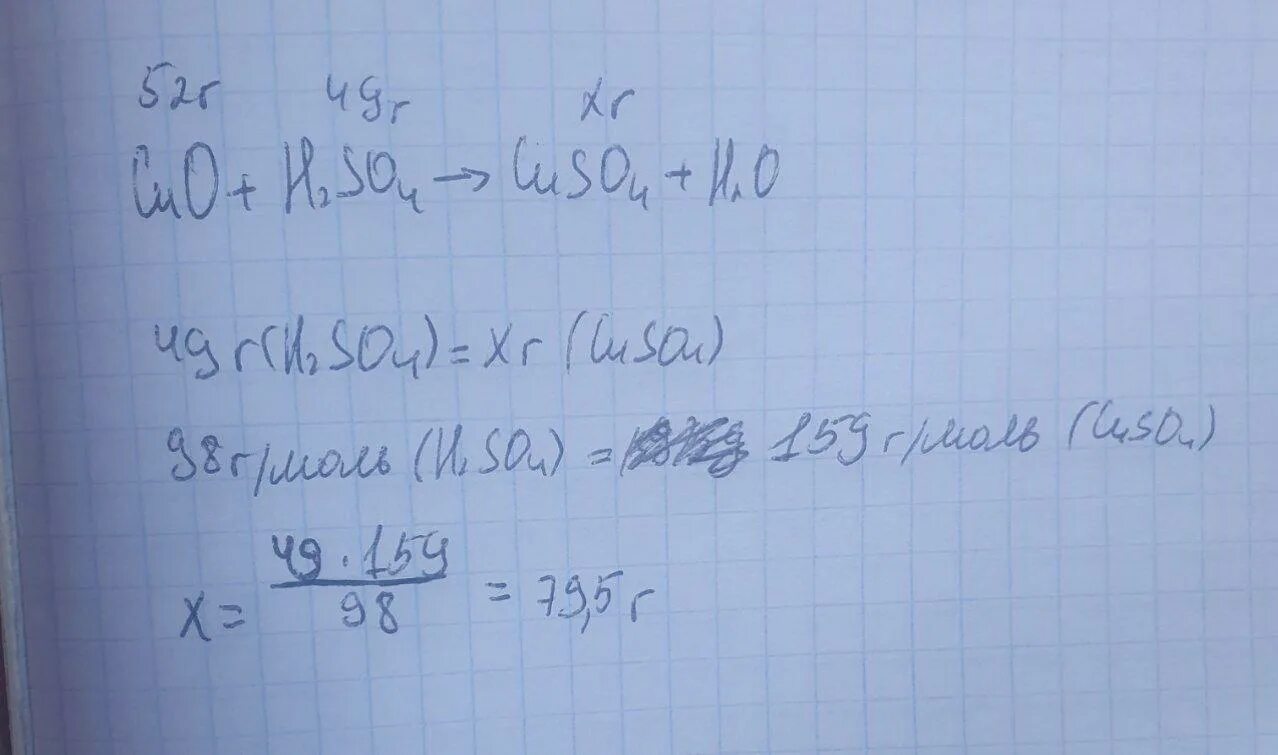 52г 49г xг
CuO + H₂SO₄ → CuSO₄ + H₂O
49 г (H₂SO₄) = x г (CuSO₄)
98 г/моль (H₂SO₄) = 159 г/моль (CuSO₄)
x = 49 · 159 / 98 = 79,5 г